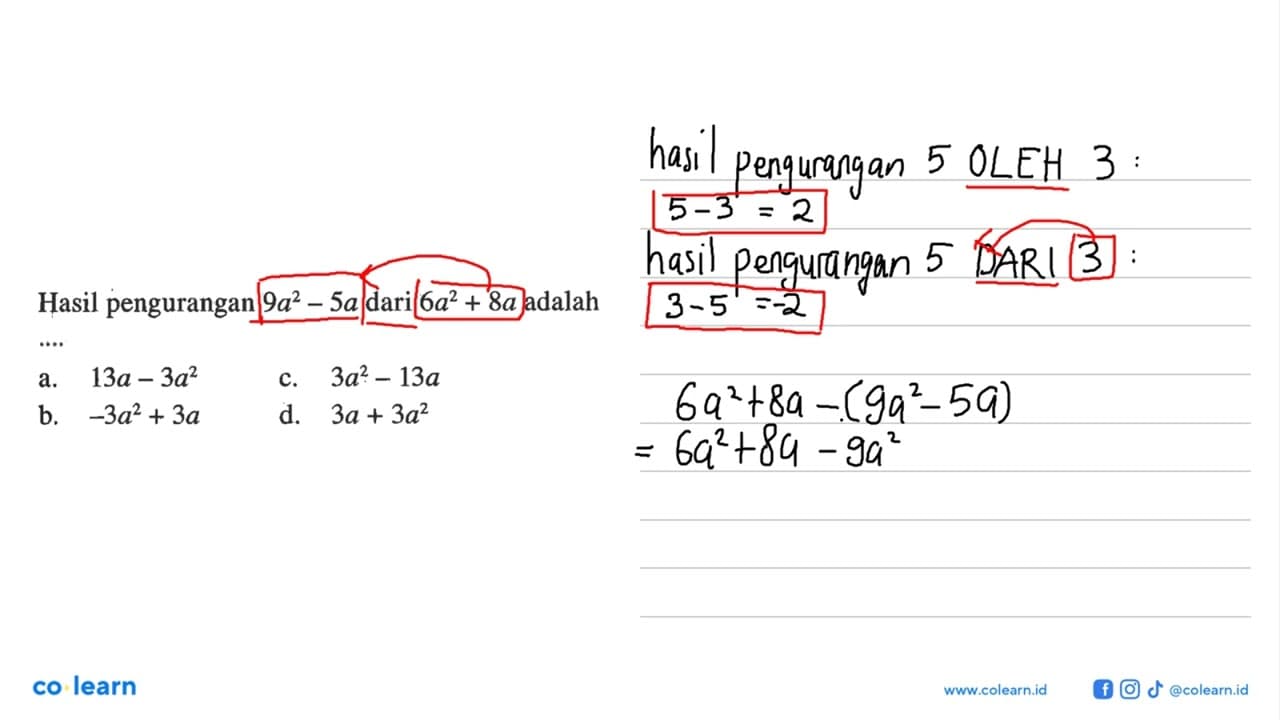 Hasil pengurangan 9a² – 5a dari 6a² + 8a adalah
....
a. 13a – 3a² c. 3a² – 13a
b. –3a² + 3a d. 3a + 3a²
hasil pengurangan 5 OLEH 3 :
5 – 3 = 2
hasil pengurangan 5 DARI 3 :
3 – 5 = –2
6a² + 8a – (9a² – 5a)
= 6a² + 8a – 9a²
co learn
www.colearn.id @colearn.id